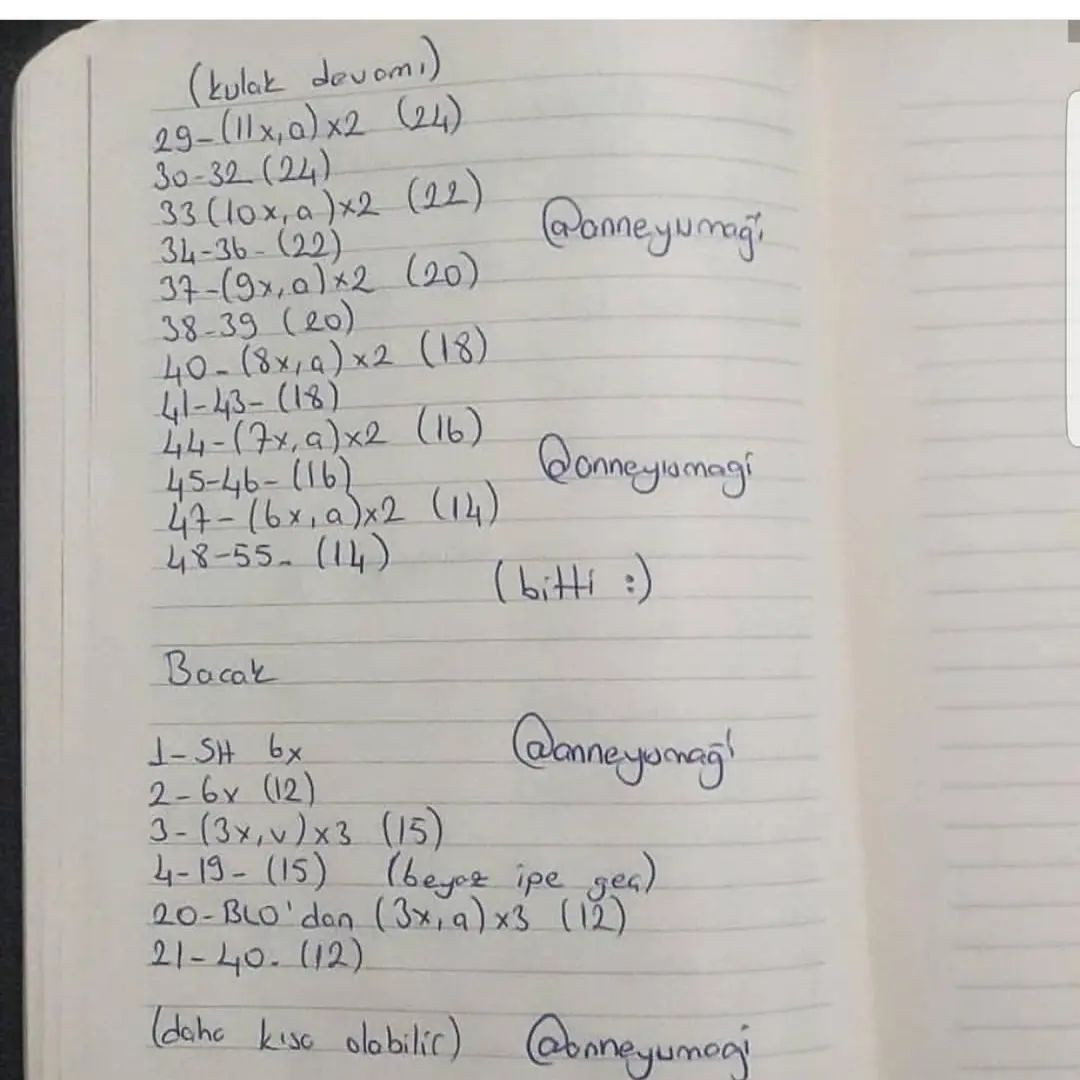 (kulak devamı)
29-(11x,a)x2 (24)
30-32 (24)
33 (10x,a)x2 (22)
@anneyumağı
34-36- (22)
37-(9x,a)x2 (20)
38-39 (20)
40-(8x,a)x2 (18)
41-43- (18)
44-(7x,a)x2 (16)
@anneyumagi
45-46- (16)
47-(6x,a)x2 (14)
48-55- (14)
(bitti :)
Bacak
1-SH 6x
@anneyumağı
2-6v (12)
3-(3x,v)x3 (15)
4-19- (15) (beyaz ipe geç)
20-BLO'dan (3x,a)x3 (12)
21-40- (12)
(daha kısa olabilir) @anneyumagi